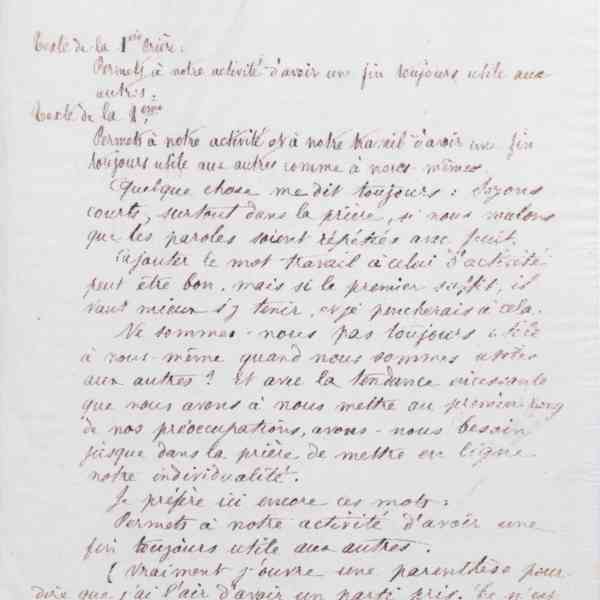 Texte de la 1ère Prière.
Permets à notre activité d'avoir une fin toujours utile aux
autres.
Texte de la 2ème
Permets à notre activité et à notre travail d'avoir une fin
toujours utile aux autres comme à nous-mêmes.
Quelque chose me dit toujours : Soyons
courts, surtout dans la prière, si nous voulons
que les paroles soient répétées avec fruit.
Ajouter le mot travail à celui d'activité
peut être bon, mais si le premier suffit, il
vaut mieux s'y tenir, et je pencherais à cela.
Ne sommes-nous pas toujours utile
à nous-même quand nous sommes utiles
aux autres ? Et avec la tendance incessante
que nous avons à nous mettre au premier rang
de nos préoccupations, avons-nous besoin
jusque dans la prière de mettre en ligne
notre individualité.
Je préfère ici encore ces mots :
Permets à notre activité d'avoir une
fin toujours utile aux autres.
(Vraiment j'ouvre une parenthèse pour
dire que j'ai l'air d'avoir un parti pris. Ce n'est